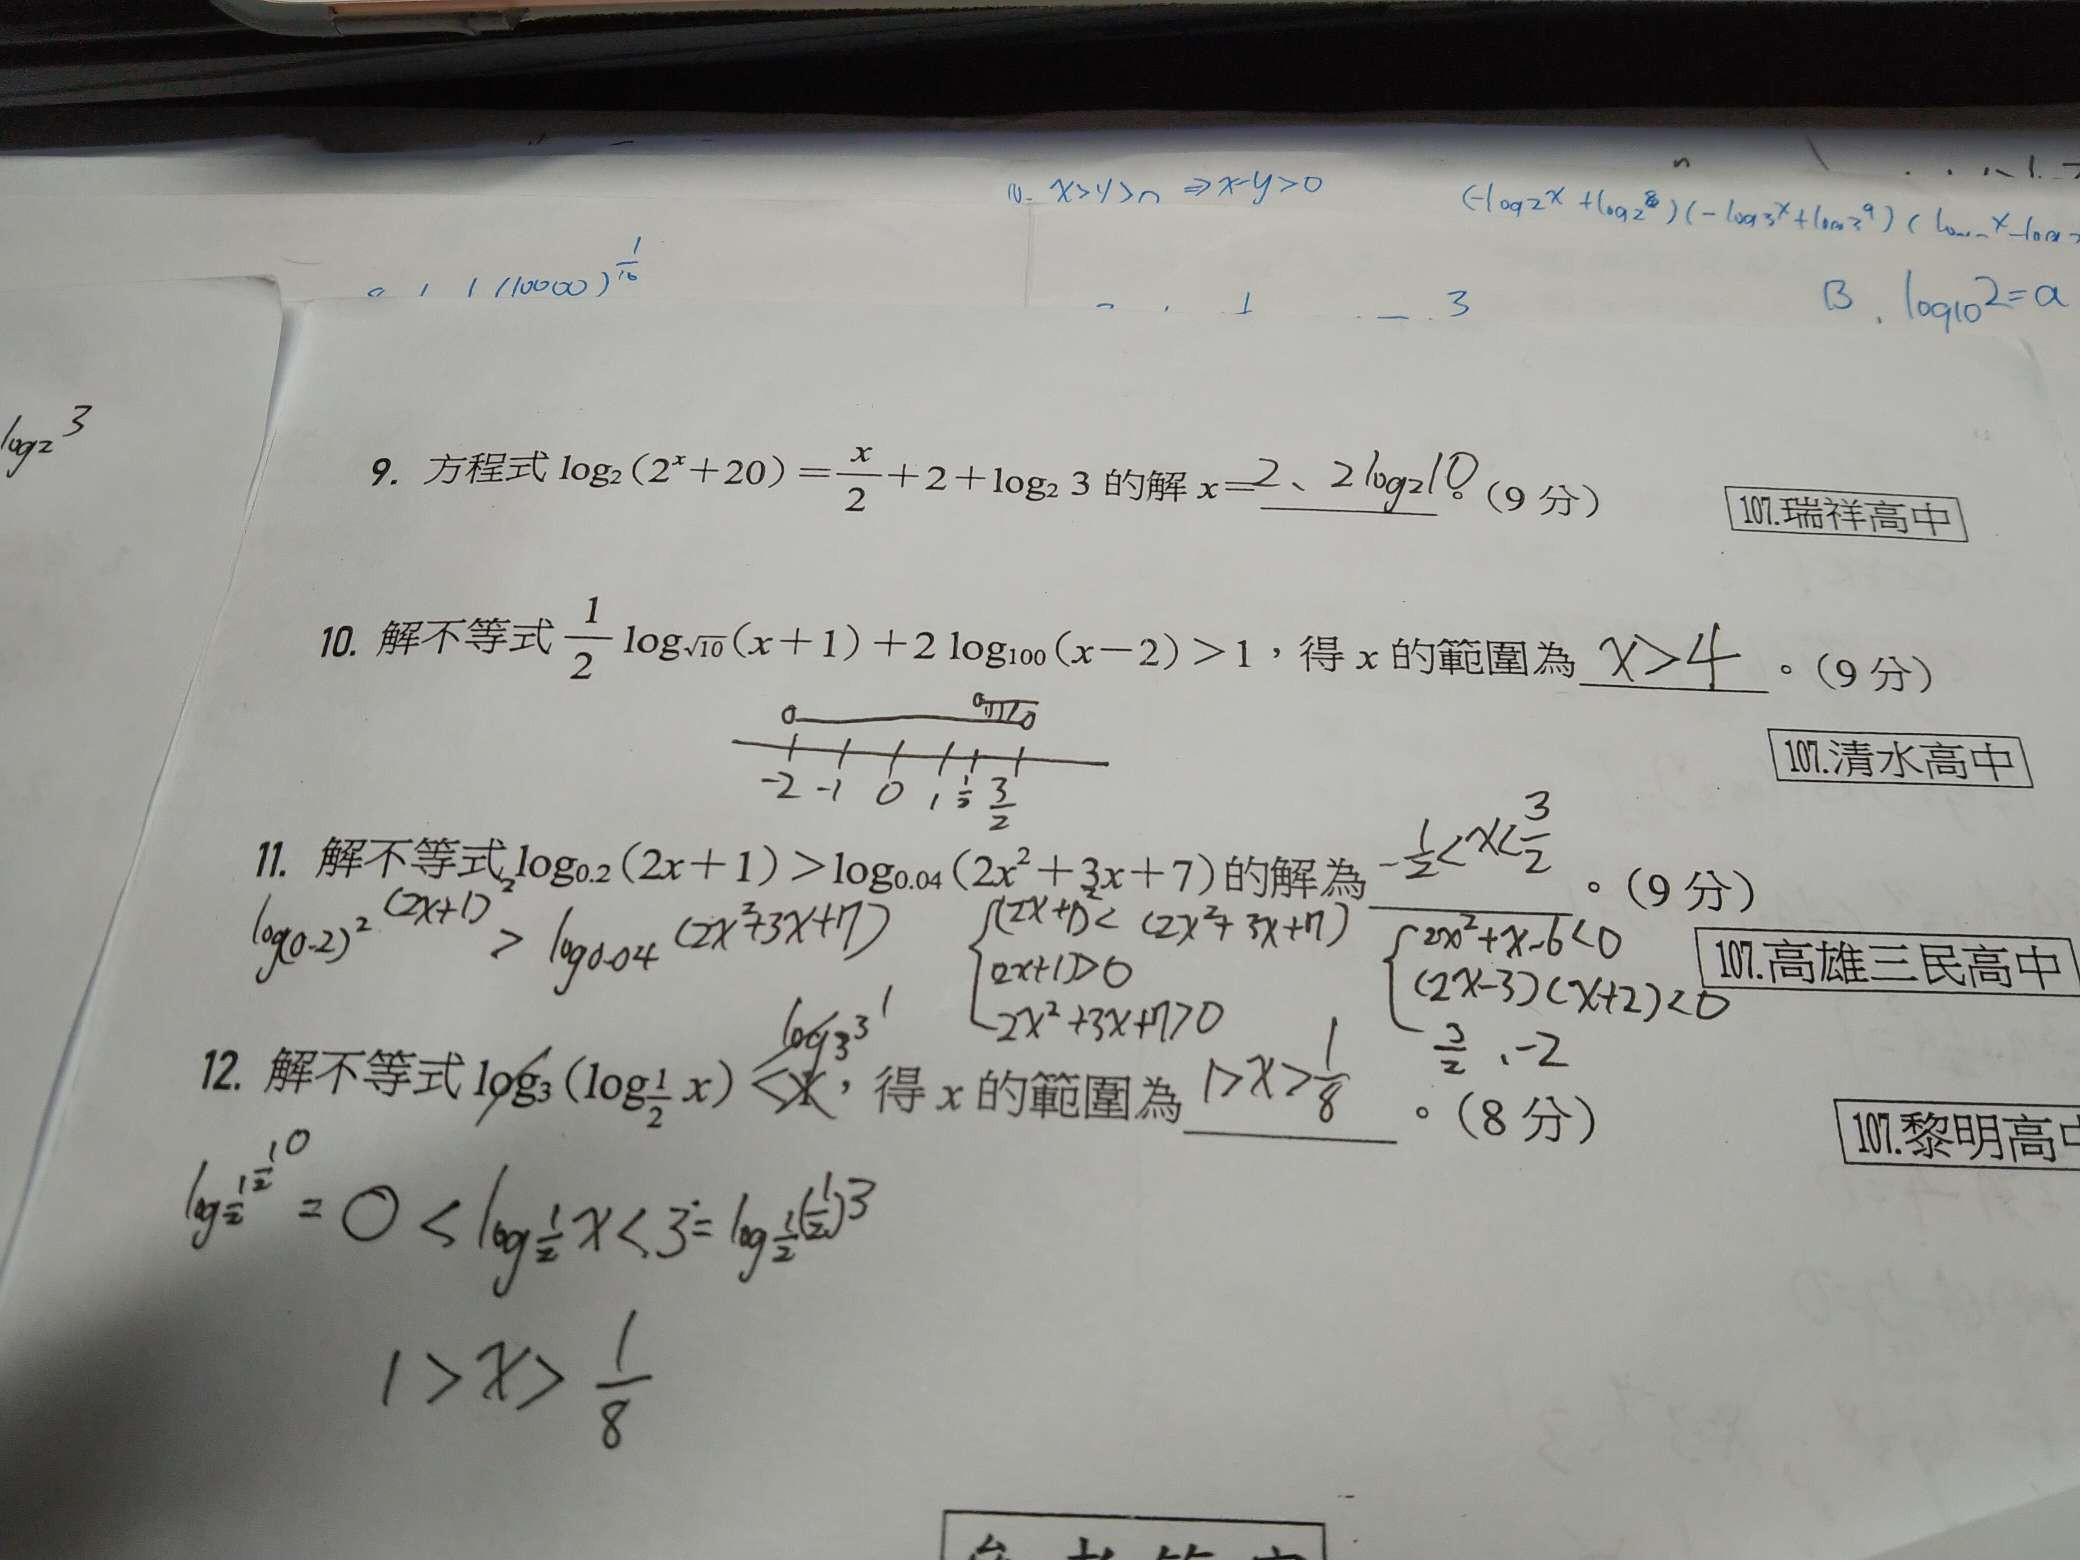 x>y>n ⇒x-y>0
(-log2^x +log2^8)(-log3^x+log3^9)(
(10000)^1/10
3
B. log10 2=a
log2 3
9. 方程式 log₂(2^x+20)=x/2+2+log₂ 3 的解 x=2、2log₂10。(9 分)
107.瑞祥高中
10. 解不等式 1/2 log√10(x+1)+2 log₁₀₀(x-2)>1，得 x 的範圍為 x>4。(9 分)
107.清水高中
-2 -1 0 1 1/2 3/2
11. 解不等式 log0.2(2x+1)>log0.04(2x²+3x+7)的解為 -1/2<x<3/2。(9 分)
log(0.2)² (2x+1)² > log0.04 (2x²+3x+7)
(2x+1)²<(2x²+3x+7)
2x+1>0
2x²+3x+7>0
2x²+x-6<0
(2x-3)(x+2)<0
3/2、-2
107.高雄三民高中
log₃3^1
12. 解不等式 log₃(log1/2 x)<1，得 x 的範圍為 1>x>1/8。(8 分)
107.黎明高中
log1/2 1/2^0 = 0<log1/2 x<3=log1/2(1/2)^3
1>x>1/8